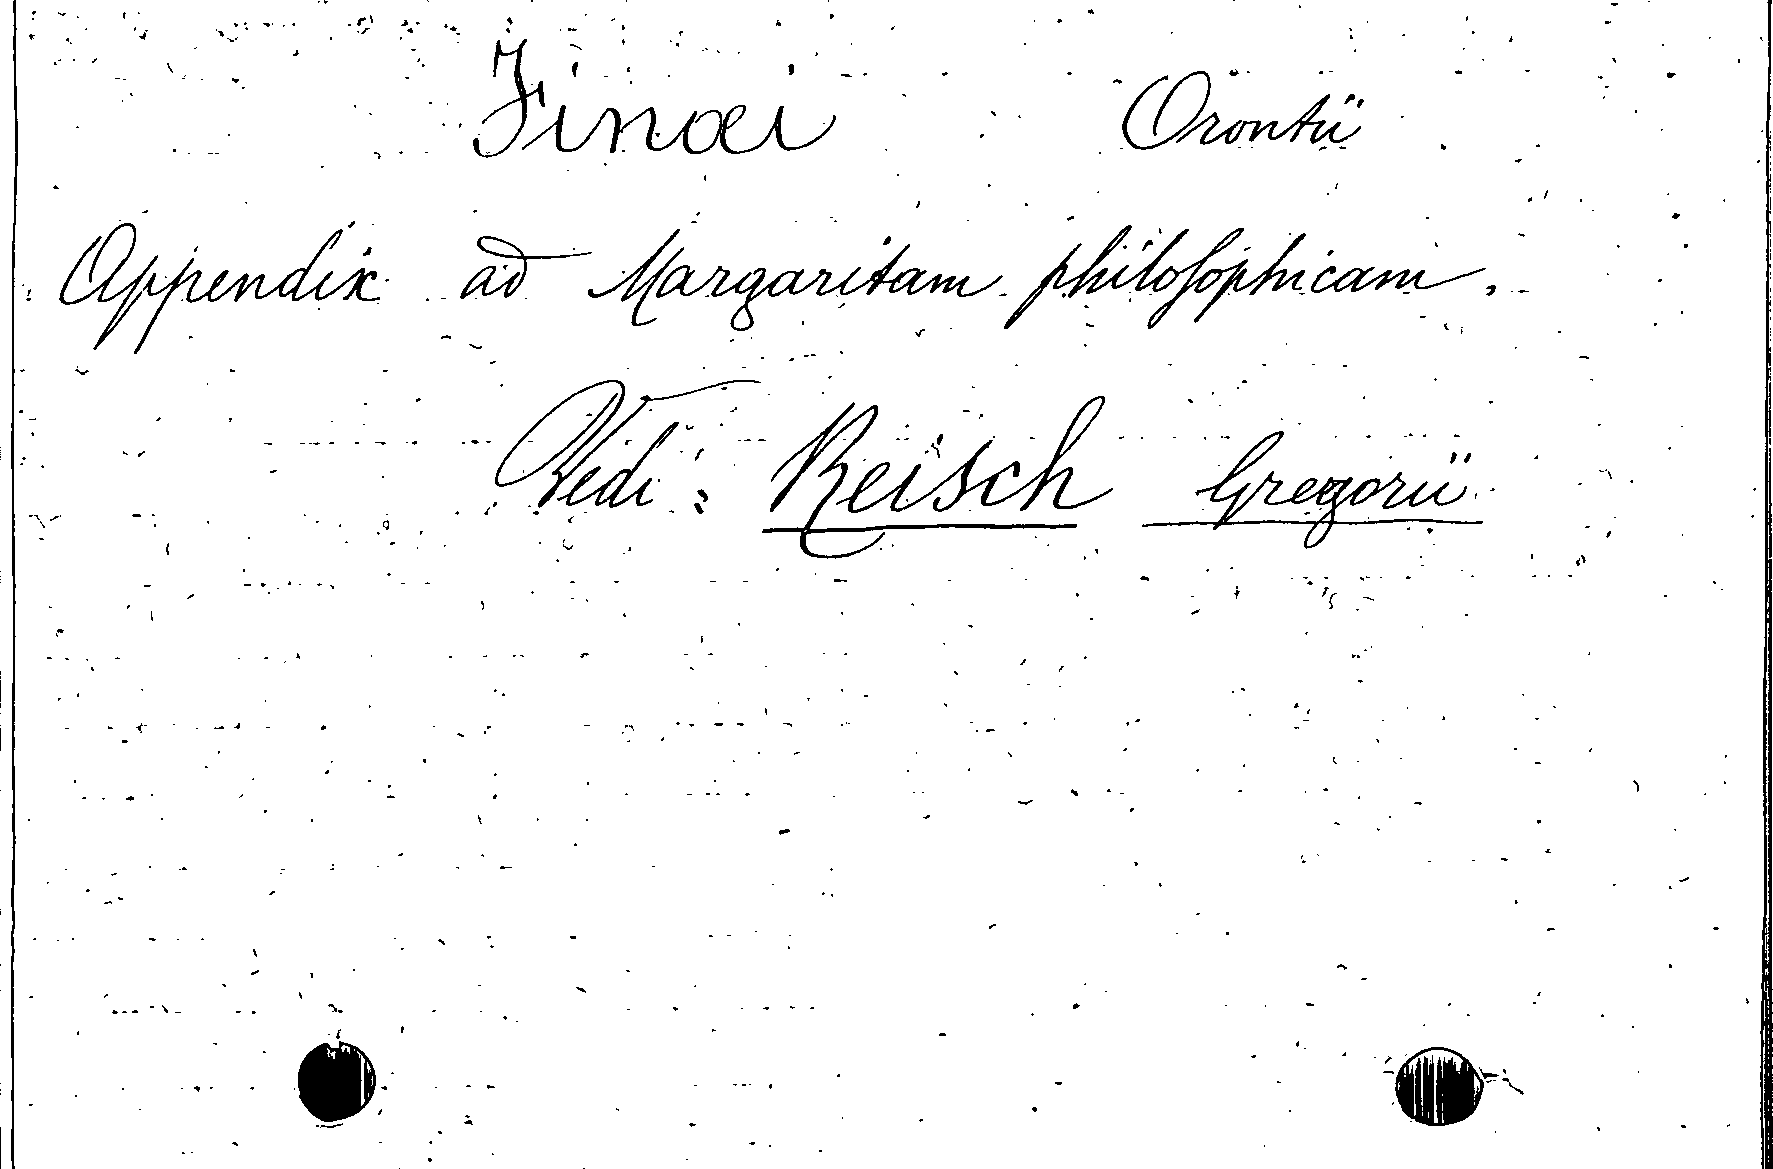 Finaei Orontii
Appendix ad Margaritam philosophicam.
Vedi: Reisch Gregorii